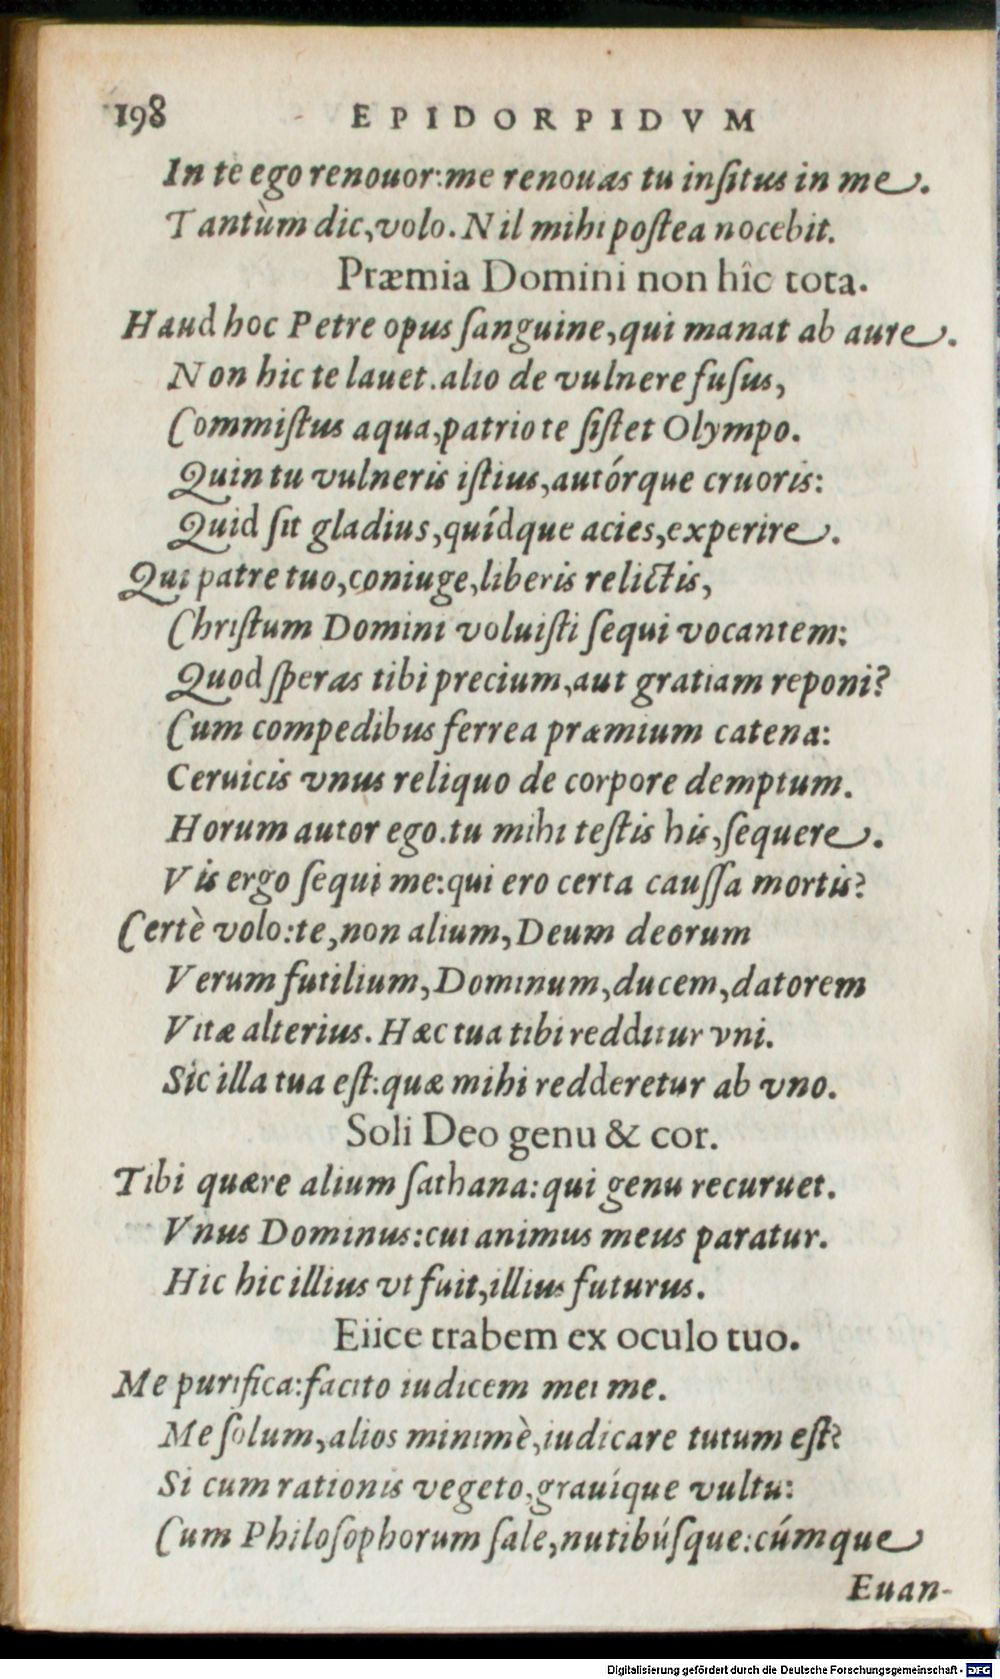 198 EPIDORPIDVM
In te ego renouor: me renouas tu inſitus in me.
Tantùm dic, volo. Nil mihi poſtea nocebit.
Præmia Domini non hîc tota.
Haud hoc Petre opus ſanguine, qui manat ab aure.
Non hic te lauet. alio de vulnere fuſus,
Commiſtus aqua, patrio te ſiſtet Olympo.
Quin tu vulneris iſtius, autórque cruoris:
Quid ſit gladius, quídque acies, experire.
Qui patre tuo, coniuge, liberis relictis,
Chriſtum Domini voluiſti ſequi vocantem:
Quod ſperas tibi precium, aut gratiam reponi?
Cum compedibus ferrea præmium catena:
Ceruicis vnus reliquo de corpore demptum.
Horum autor ego. tu mihi teſtis his, ſequere.
Vis ergo ſequi me: qui ero certa cauſſa mortis?
Certè volo: te, non alium, Deum deorum
Verum futilium, Dominum, ducem, datorem
Vitæ alterius. Hæc tua tibi redditur vni.
Sic illa tua eſt: quæ mihi redderetur ab vno.
Soli Deo genu & cor.
Tibi quære alium ſathana: qui genu recuruet.
Vnus Dominus: cui animus meus paratur.
Hic hic illius vt fuit, illius futurus.
Eiice trabem ex oculo tuo.
Me purifica: facito iudicem mei me.
Me ſolum, alios minimè, iudicare tutum eſt?
Si cum rationis vegeto, grauíque vultu:
Cum Philoſophorum ſale, nutibúſque: cúmque
Euan-
Digitalisierung gefördert durch die Deutsche Forschungsgemeinschaft - DFG